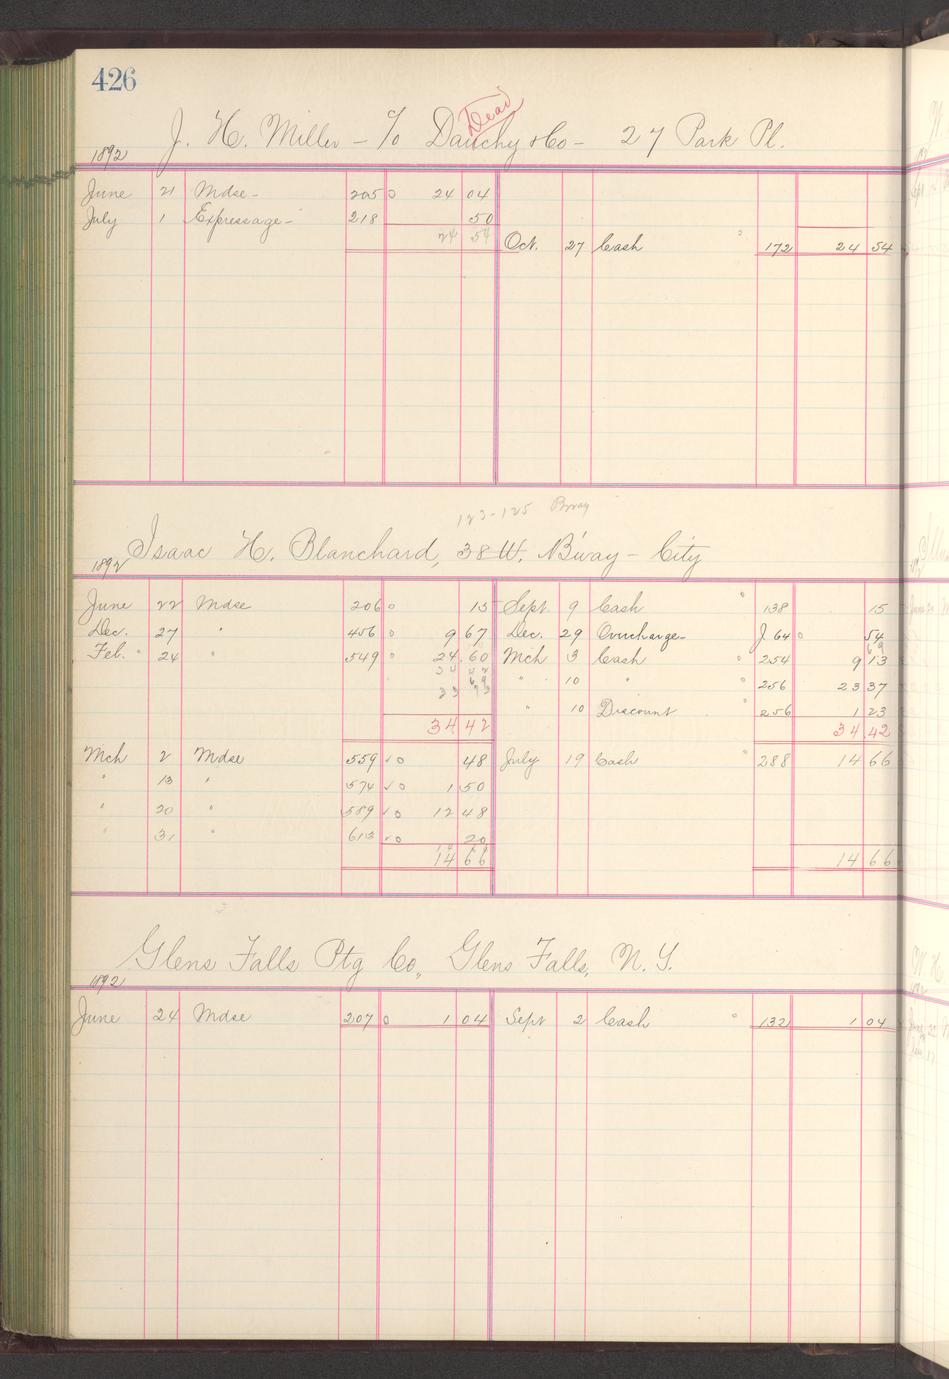 426
Dead
J. H. Miller – c/o Dauchy & Co – 27 Park Pl.
1892
June 21 Mdse – 205 0 24 04
July 1 Expressage – 218 50
24 54 Oct. 27 Cash 172 24 54
123-125 Bway
Isaac H. Blanchard, 38 W. B'way – City
1892
June 22 Mdse 206 0 15 Sept. 9 Cash 138 15
Dec. 27 " 456 0 9 67 Dec. 29 Overcharge J. 64 0 54
Feb. 24 " 549 0 24 60 Mch 3 Cash 254 9 13
" 10 " 256 23 37
" 10 Discount 256 1 23
34 42 34 42
Mch 2 Mdse 559 √0 48 July 19 Cash 288 14 66
" 13 " 574 √0 1 50
" 20 " 589 √0 12 48
" 31 " 613 √0 20
14 66 14 66
Glens Falls Ptg Co., Glens Falls, N.Y.
1892
June 24 Mdse 207 0 1 04 Sept 2 Cash 132 1 04